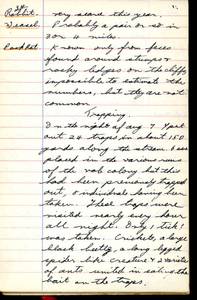 Rabbit. Very scarce this year.
Weasel. Probably a pair or so in
30 or 4 miles.
Packrat. Known only from faeces
found around stumps &
rocky ledges on the cliffs
impossible to estimate the
numbers, but they are not
common.
Trapping.
On the night of Aug 7 I put
out 24 traps in about 150
yards along the stream & was
placed in the various runs
of the vole colony but this
had been previously trapped
out, individuals having been
taken. These traps were
visited nearly every hour
all night. Only 1, tick!
was taken. Crickets, a large
black beetle, a long legged
spider like creature & a variety
of ants united in eating the
bait on the traps.